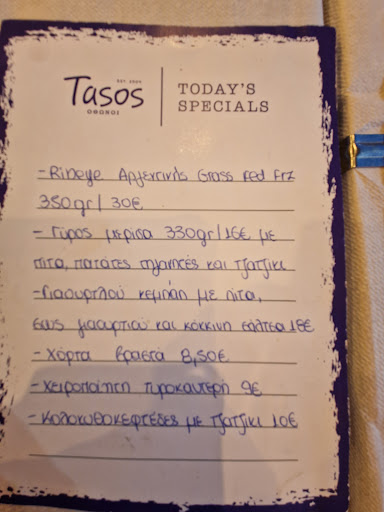 EST. 2024
Tasos
ΟΒΘΒΟΙ
TODAY'S
SPECIALS
- Ribeye Αργεντινής Grass Fed Frz
350gr/ 30€
- Γύρος μερίδα 330gr/16€ με
πίτα, πατάτες τηγανιτές και τζατζίκι
- Γιαουρτλού κεμπάπ με πίτα,
σως γιαουρτιού και κόκκινη σάλτσα 18€
- Χόρτα βραστά 8,50€
- Χειροποίητη τυροκαυτερή 9€
- Κολοκυθοκεφτέδες με τζατζίκι 10€